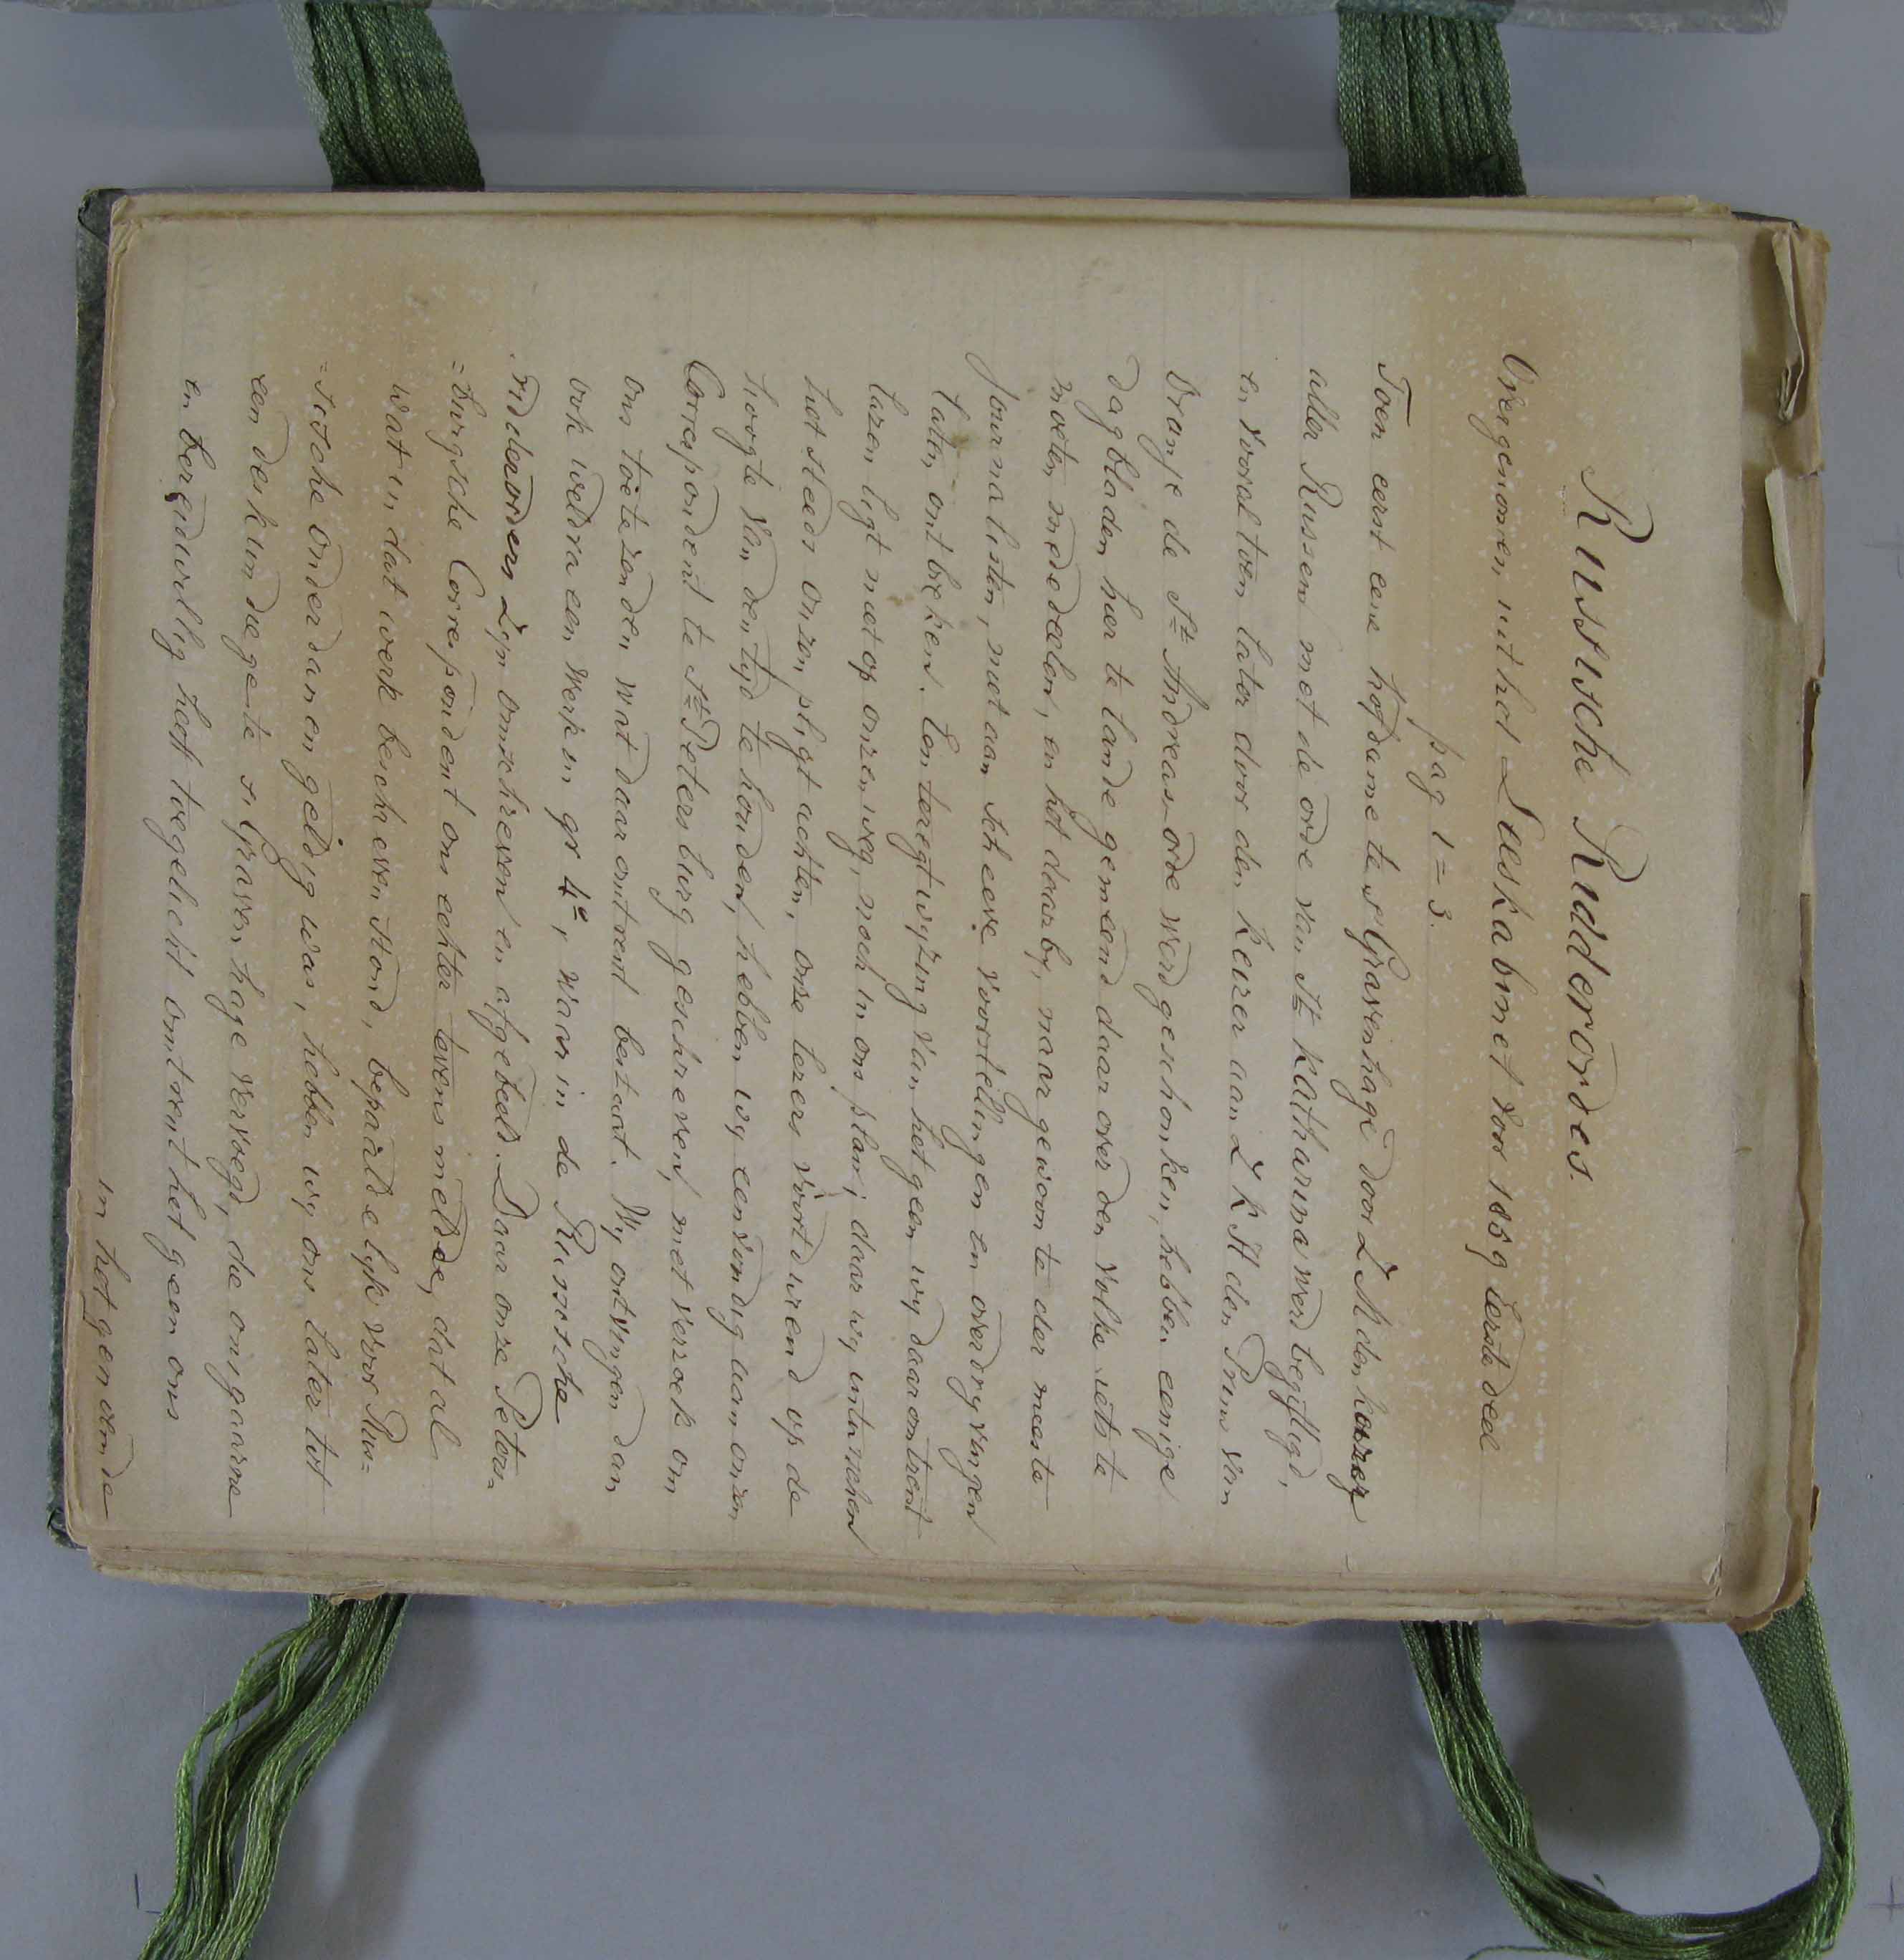 Russische Ridderordes.
Overgenomen uit het Leeskabinet voor 1869 eerste deel
pag 1 = 3.
Toen eerst eene hofdame te s' Gravenhage door Z M den keizer
aller Russen met de orde van St. Katharina werd begiftigd,
en vooral toen later door den keizer aan Z K H den Prins van
Oranje de St. Andreas-orde werd geschonken, hebben eenige
dagbladen hier te lande gemeend daar over den volke iets te
moeten mededeelen, en het daarby, naar gewoonte der meeste
journalisten, niet aan scheeve voorstellingen en overdryvingen
laten ontbreken. Een teregtwyzing van hetgeen wy daaromtrent
lazen ligt niet op onzen weg, noch in ons plan; daar wy intusschen
het steeds onzen pligt achten, onze lezers voortdurend op de
hoogte van den tyd te houden, hebben wy eenvoudig aan onzen
Correspondent te St. Petersburg geschreven, met verzoek om
ons toe te zenden wat daaromtrent bestaat. Wy ontvingen dan
ook weldra een werk in gr 4o, waar in de Russische
ridderorden zyn omschreven en afgebeeld. Daar onze Peters=
=burgsche Correspondent ons echter tevens meldde, dat al
wat in dat werk beschreven stond, bepaaldelyk voor Rus=
=sische onderdanen geldig was, hebben wy ons later tot
een deskundige te s' Gravenhage vervoegd, die ons gaarne
en bereidwillig heeft toegelicht omtrent hetgeen ons
in het genoemde